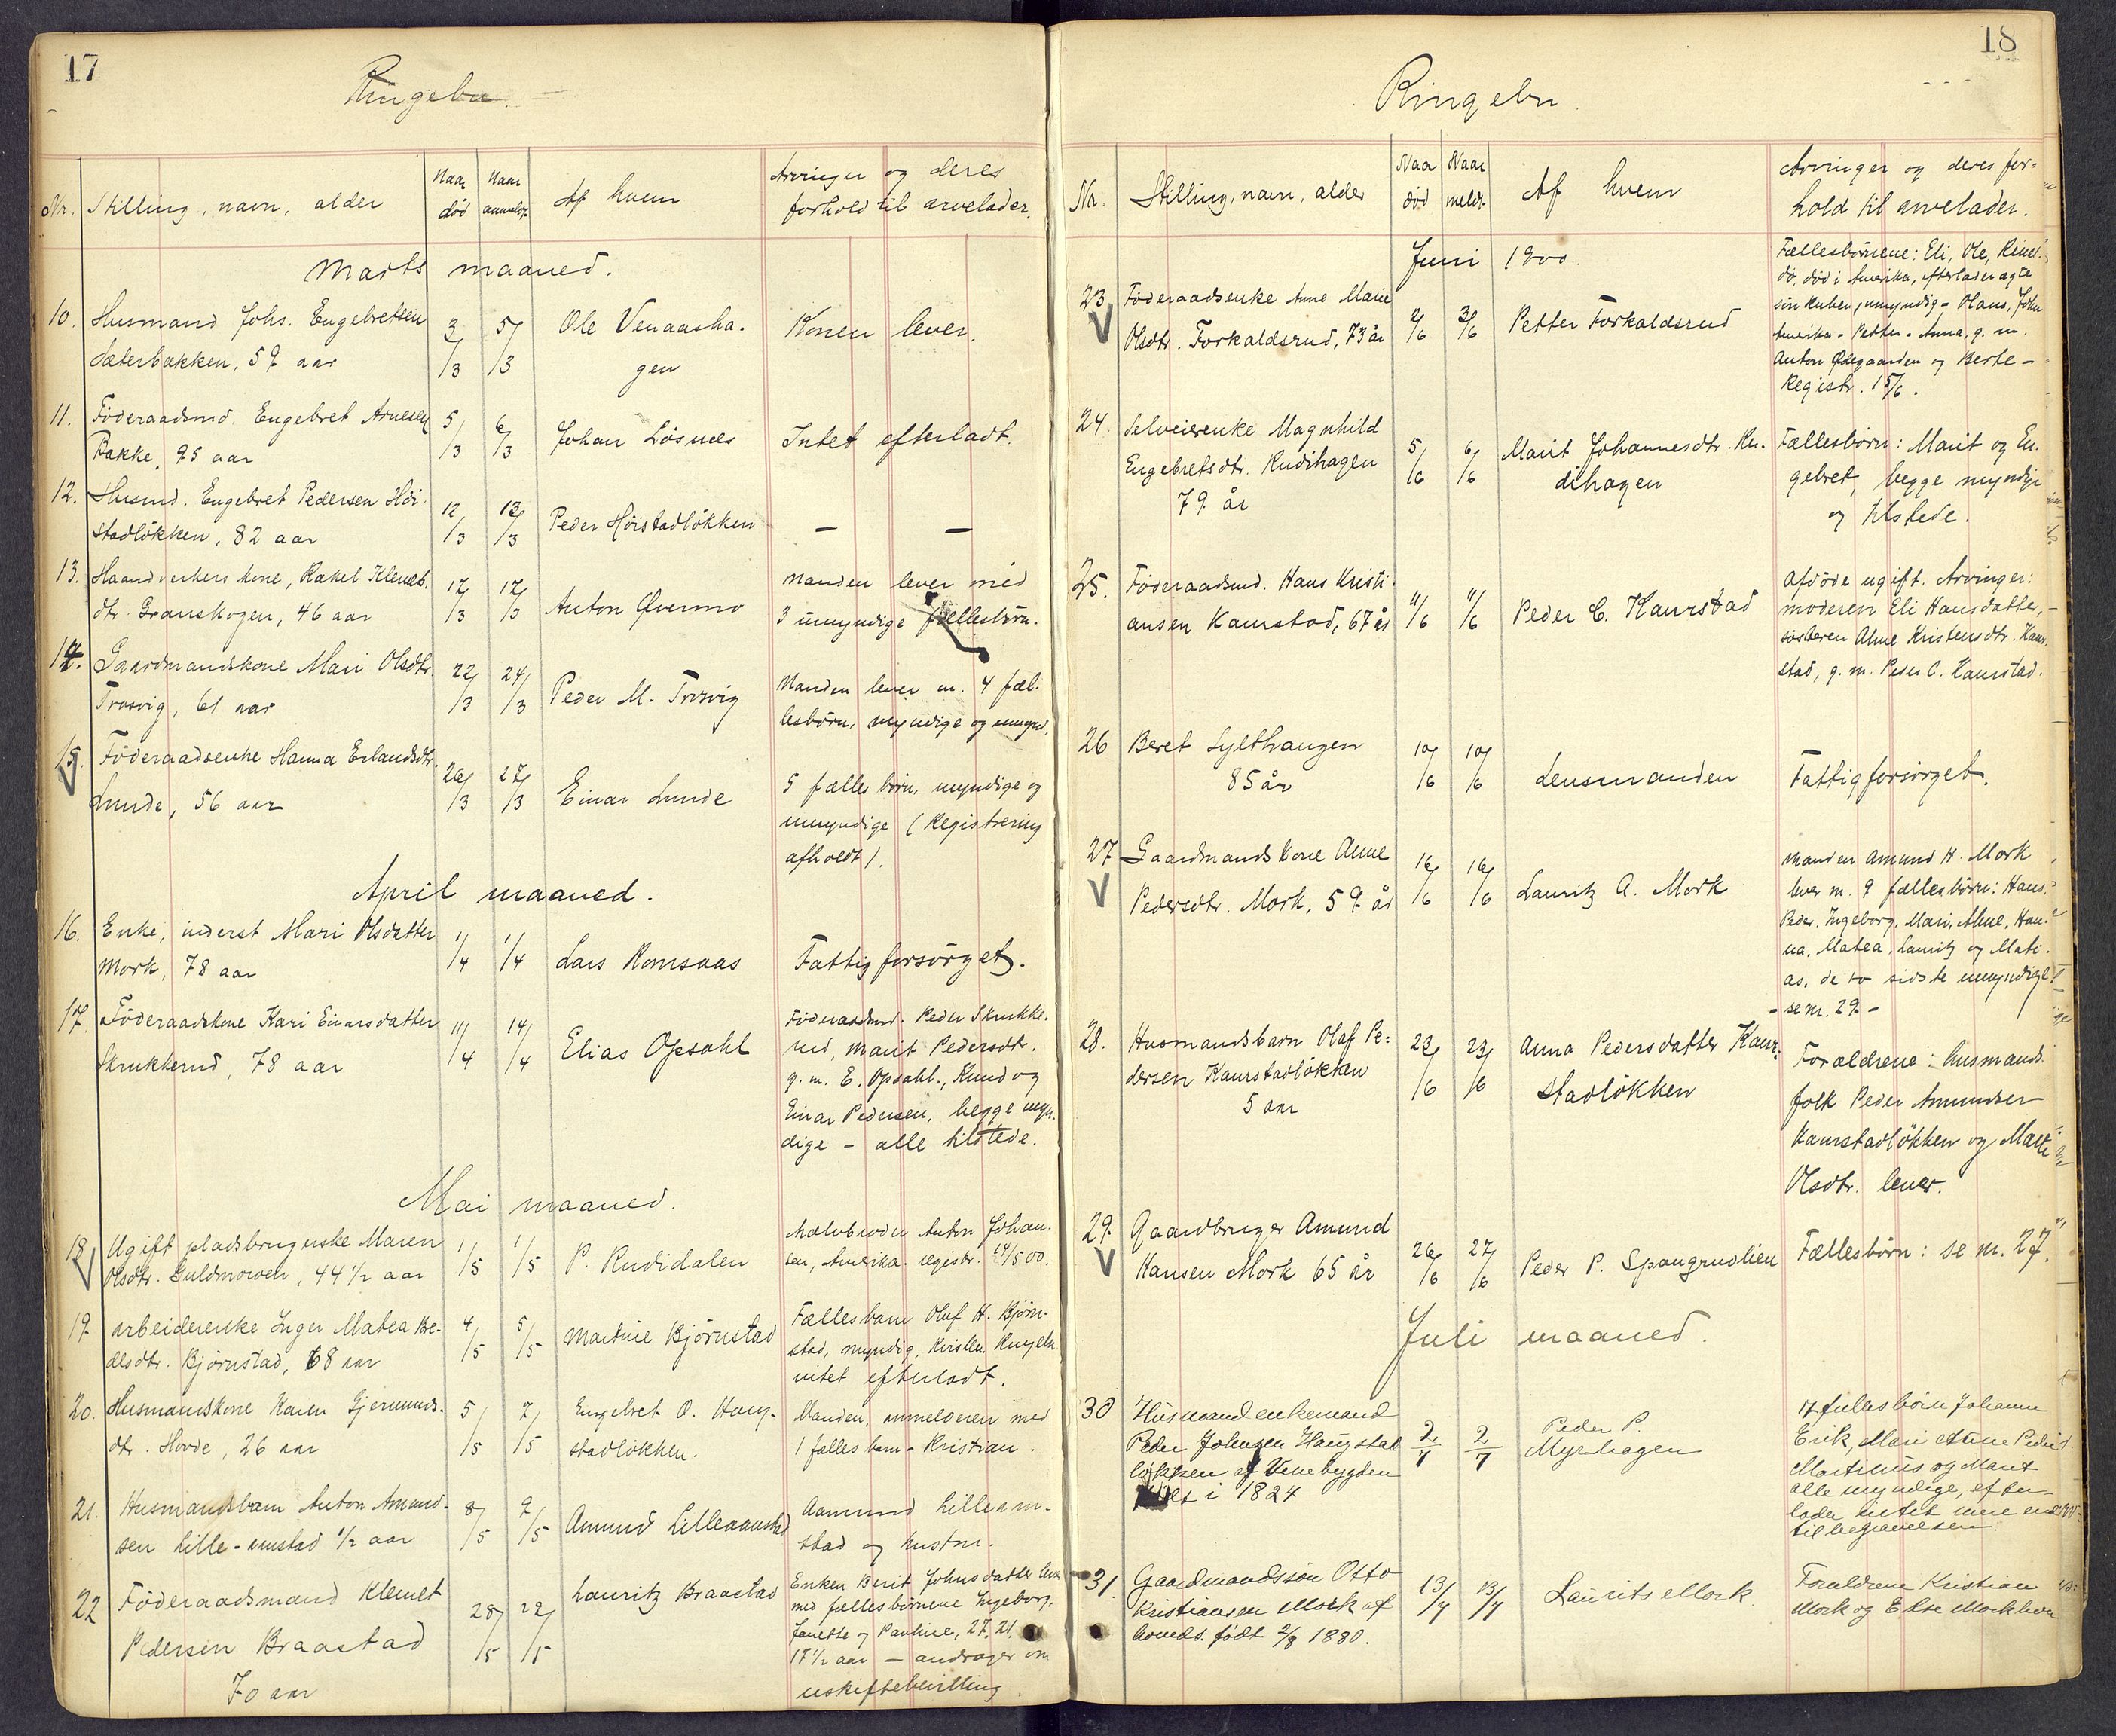 17
Ringebu.
Nr. Stilling, navn, alder
Naar død
Naar anmeldt
Af hvem
Arvinger og deres
forhold til arvelader.
Marts maaned.
10. Husmand Johs. Engebretsen
Sæterbakken, 59 aar
3/3 5/3
Ole Venaasha-
gen
Konen lever.
11. Föderaadsmd. Engebret Arnesen
Bakke, 95 aar
5/3 6/3
Johan Lösnes
Intet efterladt.
12. Husmd. Engebret Pedersen Höi-
stadlökken, 82 aar
12/3 13/3
Peder Höistadlökken
— —
13. Haandverkers kone, Rakel Klemets-
dtr. Granskogen, 46 aar
17/3 17/3
Anton Øvermo
Manden lever med
3 umyndige fællesbörn.
14. Gaardmandskone Mari Olsdtr.
Trosvig, 61 aar
22/3 24/3
Peder M. Trosvig
Manden lever m. 4 fæl-
lesbörn, myndige og umynd.
15. Föderaadsenke Hanna Erlandsdtr.
Lunde, 56 aar
26/3 27/3
Einar Lunde
5 fælles börn, myndige og
umyndige (Registrering
afholdt).
April maaned.
16. Enke, inderst Mari Olsdatter
Mork, 78 aar
1/4 1/4
Lars Romsaas
Fattigforsörget.
17. Föderaadskone Kari Einarsdatter
Skrukkerud, 78 aar
11/4 14/4
Elias Opsahl
Föderaadsmd. Peder Skrukke-
rud, Marit Pedersdtr.
g. m. E. Opsahl., Knud og
Einar Pedersen, begge myn-
dige - alle tilstede.
Mai maaned.
18 Ugift pladsbrugerske Maren
Olsdtr. Guldmoween, 44 1/2 aar
1/5 1/5
P. Rudidalen
Halvbroder Anton Johan-
sen, Amerika. Registr. 14/5 00.
19. Arbeiderenke Inger Matea
dtr. Björnstad, 68 aar
4/5 5/5
Martine Björnstad
Fællesbarn Oluf H. Björn-
stad, myndig, Ringebu
intet efterladt.
20. Husmandskone Karen Gjermunds-
dtr. Hovde, 26 aar
5/5 7/5
Engebret O. Haug-
stadlökken.
Manden, anmelderen med
1 fælles barn - Kristian.
21. Husmandsbarn Anton Amund-
sen Lille-amstad 1/2 aar
8/5 9/5
Amund Lilleaamstad
Aamund Lilleam-
stad og hustru.
22 Föderaadsmand Klemet
Pedersen Braastad
70 aar
28/5 29/5
Lauritz Braastad
Enken Berit Johnsdatter lever
med fællesbörnene Ingeborg,
Janette og Pauline, 27, 21,
17 1/2 aar - andrager om
uskiftebevilling
18
Ringebu
Nr. Stilling, navn, alder
Naar död
Naar meldt
Af hvem
Arvinger og deres for-
hold til arvelader.
Juni 1900
23 Föderaadsenke Anne Marie
Olsdtr. Forkaldsrud, 73 år
2/6 3/6
Petter Forkaldsrud
Fællesbörnene: Eli, Ole,
död i Amerika, efterlader ægte
sön Ruben, umyndig - Olaus, John
Amerika - Petter - Anna, g. m.
Anton Ødegaarden og Berte -
Registr. 15/6.
24. Selveierenke Magnhild
Engebretsdtr. Rudihagen
79 år
5/6 6/6
Marit Johannesdtr. Ru-
dihagen
Fællesbörn: Marit og En-
gebret, begge myndige
og tilstede.
25. Föderaadsmd. Hans Kristi-
ansen Kamstad, 67 år
11/6 11/6
Peder C. Kamstad
Afdöde ugift. Arvinger:
moderen Eli Hansdatter, -
sösteren Anne Kristensdtr. Kam-
stad, g. m. Peder C. Kamstad.
26 Beret Sylthaugen
85 år
10/6 10/6
Lensmanden
Fattigforsörget.
27 Gaardmandskone Anne
Pedersdtr. Mork, 59 år
16/6 16/6
Lauritz A. Mork
Manden Amund H. Mork
lever m. 9 fællesbörn: Hans,
Peder, Ingeborg, Mari, Anne, Han-
na, Matea, Lauritz og Mati-
as, de to sidste umyndige
- se nr. 29 -
28. Husmandsbarn Olaf Pe-
dersen Kamstadlökken
5 aar
23/6 23/6
Anna Pedersdatter Kam-
stadlökken
Forældrene: husmands-
folk Peder Amundsen
Kamstadlökken og Marte
Olsdtr. lever.
29. Gaardbruger Amund
Hansen Mork 65 år
26/6 27/6
Peder P. Spangrudlien
Fællesbörn: se nr. 27.
Juli maaned.
30 Husmand enkemand
Peder Johnsen Haugstad
løkken af Venebygden
født i 1824
2/7 2/7
Peder P.
Myrhagen
fællesbörn Johanne
Erik, Mari Anne Peder
Martinus og Marit
alle myndige, efter-
lader intet mere end
til begravelsen.
31. Gaardmandssøn Otto
Kristiansen Mork af
hoveds. født 2/8 1880.
13/7 13/7
Laurits Mork.
Forældrene Kristian
Mork og Else Mork lever